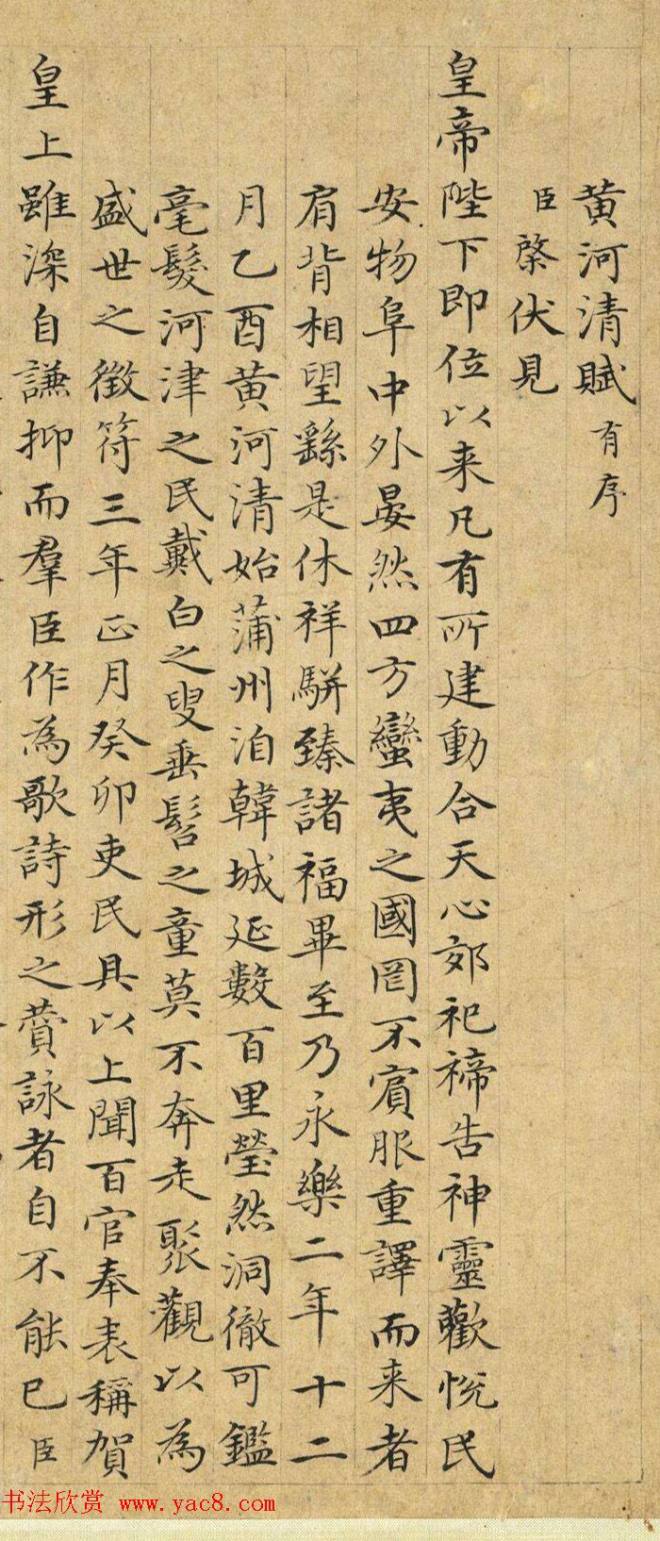 黄河清賦有序
臣棨伏見
皇帝陛下即位以来凡有所建動合天心郊祀禘告神靈歡悅民
安物阜中外晏然四方蠻夷之國罔不賓服重譯而来者
肩背相望繇是休祥駢臻諸福畢至乃永樂二年十二
月乙酉黄河清始蒲州洎韓城延數百里瑩然洞徹可鑑
毫髮河津之民戴白之叟垂髫之童莫不奔走聚觀以為
盛世之徵符三年正月癸卯吏民具以上聞百官奉表稱賀
皇上雖深自謙抑而羣臣作為歌詩形之賛詠者自不能已臣
书法欣赏 www.yac8.com